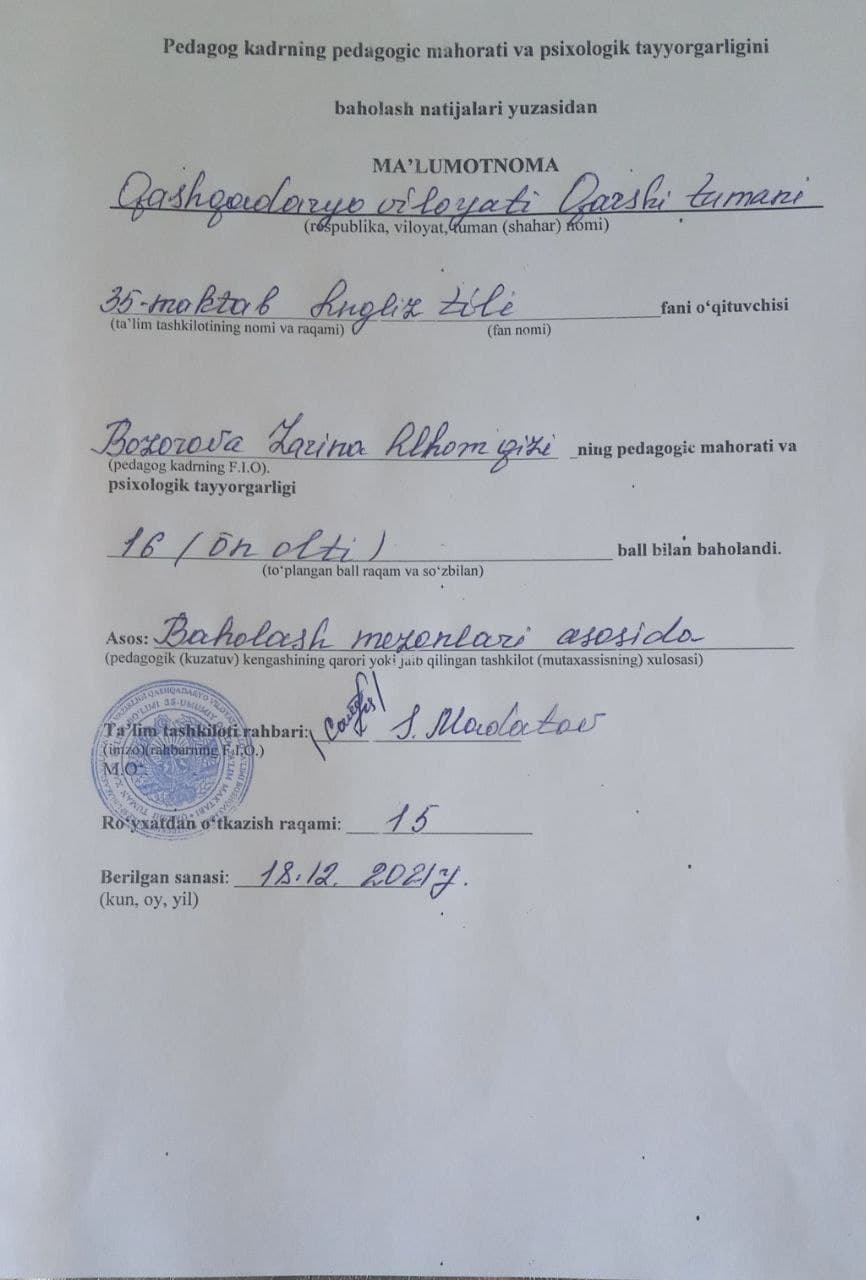 Pedagog kadrning pedagogic mahorati va psixologik tayyorgarligini
baholash natijalari yuzasidan
MA’LUMOTNOMA
Qashqadaryo viloyati Qarshi tumani
(respublika, viloyat, tuman (shahar) nomi)
35-maktab Ingliz tili fani o‘qituvchisi
(ta’lim tashkilotining nomi va raqami) (fan nomi)
Bozorova Zarina Ilhom qizi ning pedagogic mahorati va
(pedagog kadrning F.I.O).
psixologik tayyorgarligi
16 (ōn olti) ball bilan baholandi.
(to‘plangan ball raqam va so‘zbilan)
Asos: Baholash mezonlari asosida
(pedagogik (kuzatuv) kengashining qarori yoki jalb qilingan tashkilot (mutaxassisning) xulosasi)
Ta’lim tashkiloti rahbari: S. Madatov
(imzo)(rahbarning F.I.O.)
M.O‘.
Ro‘yxatdan o‘tkazish raqami: 15
Berilgan sanasi: 18.12. 2021y.
(kun, oy, yil)